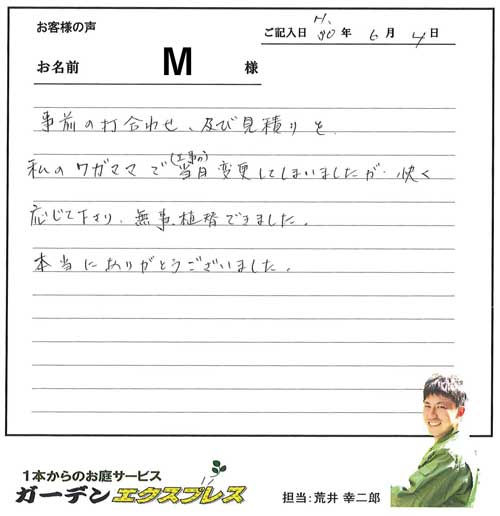 お客様の声
ご記入日 H.30年 6月 4日
お名前 M 様
事前の打合わせ、及び見積りを、
私のワガママで(工事の)当日変更してしまいましたが、快く
応じて下さり、無事、植替できました。
本当にありがとうございました。
1本からのお庭サービス
ガーデンエクスプレス
担当:荒井 幸二郎